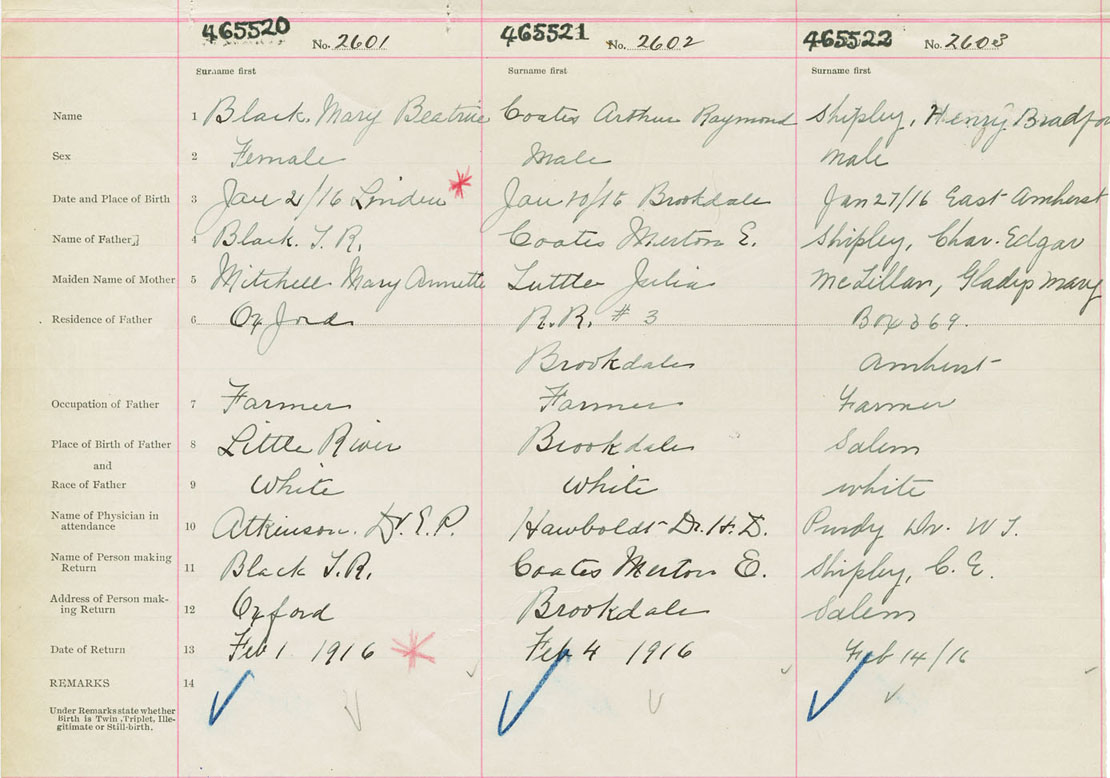 465520 No. 2601 465521 No. 2602 465522 No. 2603
Surname first Surname first Surname first
Name 1 Black, Mary Beatrice Coates Arthur Raymond Shipley, Henry Bradfor
Sex 2 Female Male Male
Date and Place of Birth 3 Jan 2/16 Linden * Jan 10/16 Brookdale Jan 27/16 East Amherst
Name of Father 4 Black. T. R. Coates Merton E. Shipley, Char. Edgar
Maiden Name of Mother 5 Mitchell Mary Annette Julia Gladys Mary
Residence of Father 6 Oxford R.R. # 3 Box 369.
Brookdale Amherst
Occupation of Father 7 Farmer Farmer Farmer
Place of Birth of Father 8 Little River Brookdale Salem
and
Race of Father 9 White White White
Name of Physician in
attendance 10 Atkinson. Dr. E. P. Hawboldt Dr. H. D. Purdy Dr. W T.
Name of Person making
Return 11 Black T.R. Coates Merton E. Shipley, C. E.
Address of Person mak-
ing Return 12 Oxford Brookdale Salem
Date of Return 13 Feb 1 1916 * Feb 4 1916 Feb 14/16
REMARKS 14
Under Remarks state whether
Birth is Twin, Triplet, Ille-
gitimate or Still-birth.